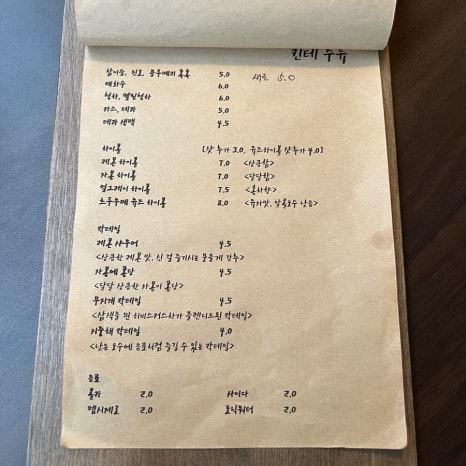 킨테 주류
참이슬, 진로, 동우에리 톡톡 5.0 새로 5.0
매화수 6.0
청하, 별빛청하 6.0
카스, 테라 5.0
테라 생맥 4.5
하이볼 [샷 추가 3.0, 유즈하이볼 샷추가 4.0]
레몬 하이볼 7.0 <상큼함>
자몽 하이볼 7.0 <달달함>
얼그레이 하이볼 7.5 <홍차향>
유즈 하이볼 8.0 <유자맛, 알콜도수 낮음>
칵테일
레몬 사워 4.5
<상큼한 레몬 맛, 신 걸 즐기시는 분들께 강추>
자몽에 퐁당 4.5
<달달 상큼한 자몽이 퐁당>
무지개 칵테일 4.5
<삼색을 띈 블렌디드된 칵테일>
지중해 칵테일 4.0
<낮은 도수에 음료처럼 즐길 수 있는 칵테일>
음료
콜라 2.0 사이다 2.0
펩시제로 2.0 토닉워터 2.0